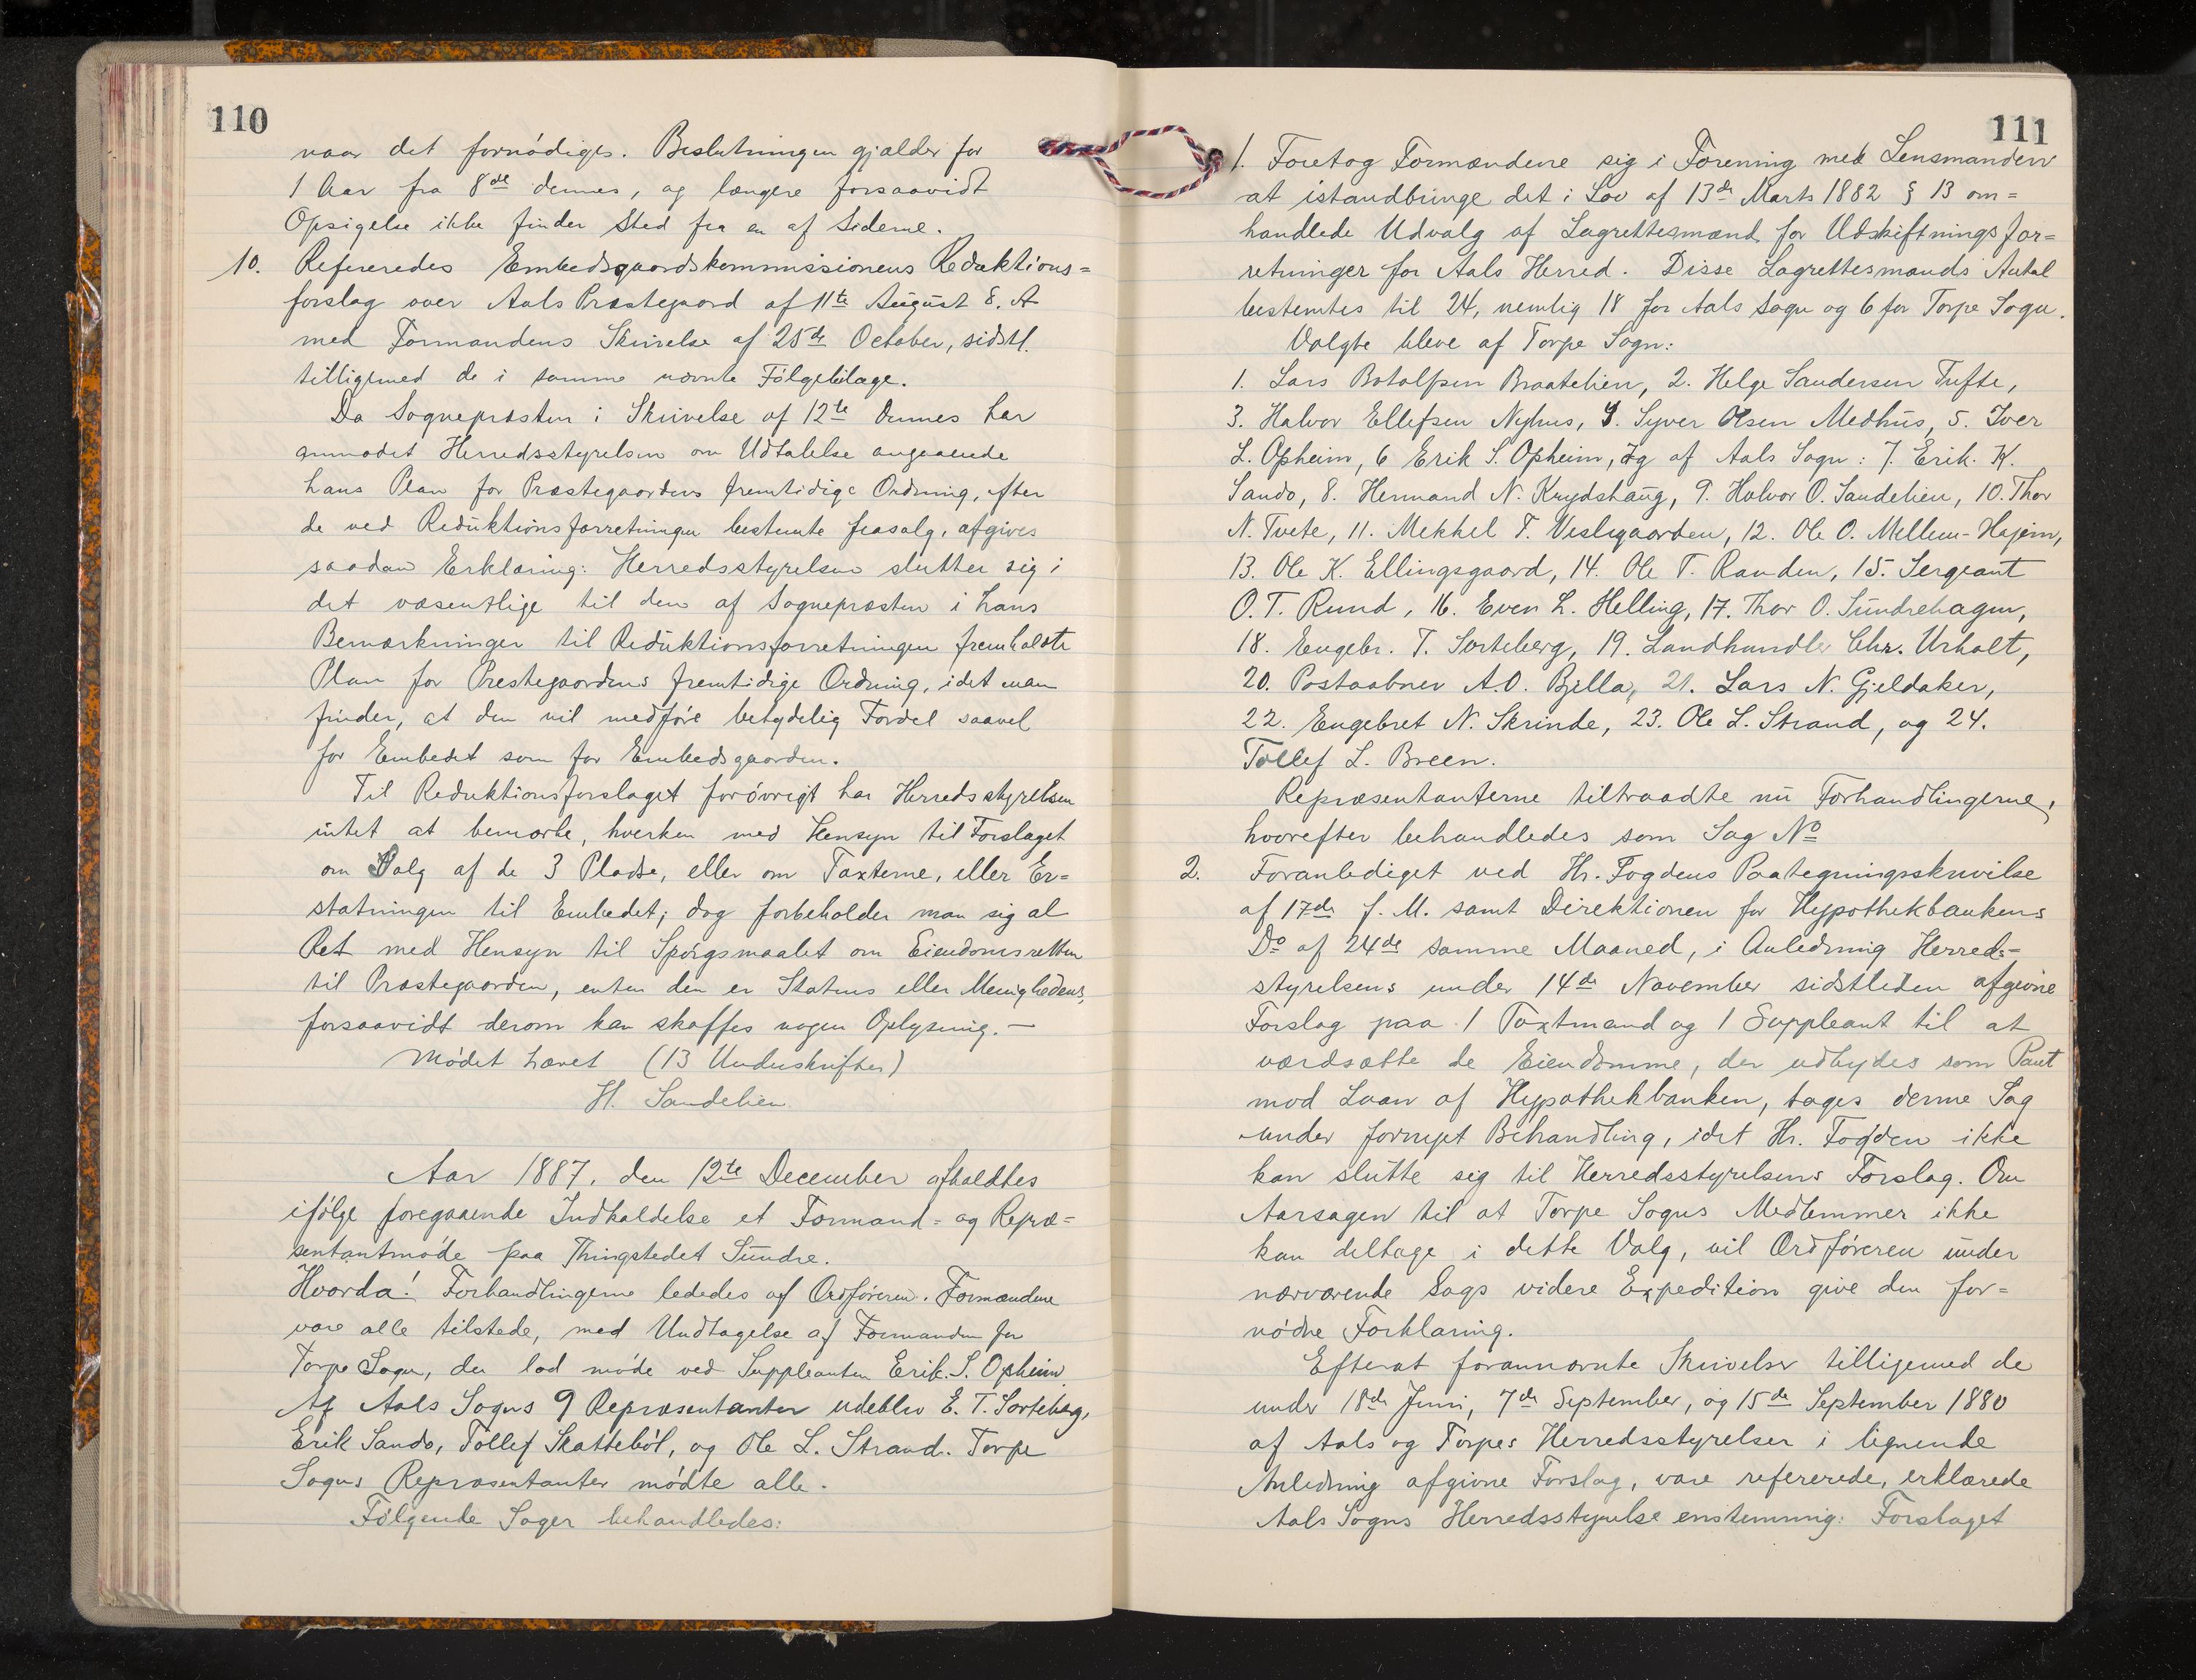 110
naar det fornödiges. Beslutningen gjælder for
1 Aar fra 8de dennes, og længere forsaavidt
Opsigelse ikke finder Sted fra en af Siderne.
10. Refereredes Embedsgaardskommissionens Reduktions=
forslag over Aals Præstegaard af 11te August d. A
med Formandens Skrivelse af 25de October, sidstl.
tilligemed de i samme nævnte Fölgebilage.
Da Sognepræsten i Skrivelse af 12te Dennes har
anmodet Herredsstyrelsen om Udtalelse angaaende
hans Plan for Præstegaardens fremtidige Ordning, efter
de ved Reduktionsforretningen bestemte frasalg, afgives
saadan Erklæring: Herredsstyrelsen slutter sig i
det væsentlige til den af Sognepræsten i hans
Bemærkninger til Reduktionsforretningen fremholdte
Plan for Prestegaardens fremtidige Ordning, idet man
finder, at den vil medföre betydelig Fordel saavel
for Embedet som for Embedsgaarden.
Til Reduktionsforslaget foróvrigt har Herredsstyrelsen
intet at bemærke, hverken med Hensyn til Forslaget
om Salg af de 3 Pladse, eller om Taxterne, eller Er=
statningen til Embedet; dog forbeholder man sig al
Ret med Hensyn til Spörgsmaalet om Eiendomsretten
til Præstegaarden, enten den er Statens eller Menighedens,
forsaavidt derom kan skaffes nogen Oplysning. —
Mödet hævet (13 Underskrifter)
H. Sandelien
Aar 1887, den 12te December afholdtes
ifölge foregaaende Indkaldelse et Formand= og Repræ=
sentantmöde paa Thingstedet Sundre.
Hvorda! Forhandlingerne lededes af Ordföreren. Formændene
vare alle tilstede, med Undtagelse af Formanden for
Torpe Sogn, der lod möde ved Suppleanten Erik S. Opheim.
Af Aals Sogns 9 Repræsentanter udeblev E. T. Sorteberg,
Erik Sando, Tollef Skatteböl, og Ole L. Strand. Torpe
Sogns Repræsentanter mödte alle.
Fölgende Sager behandledes:
111
1. Foretog Formændene sig i Forening med Lensmanden
at istandbringe det i Lov af 13de Marts 1882 § 13 om=
handlede Udvalg af Lagrettesmænd for Udskiftningsfor=
retninger for Aals Herred. Disse Lagrettesmænds Antal
bestemtes til 24, nemlig 18 for Aals Sogn og 6 for Torpe Sogn.
Valgte bleve af Torpe Sogn:
1. Lars Botolfsen Braatelien, 2. Helge Sandersen Tufte,
3. Halvor Ellefsen Nyhus, 4. Syver Olsen Medhus, 5. Iver
L. Opheim, 6 Erik S. Opheim, og af Aals Sogn: 7. Erik K.
Sando, 8. Hermand N. Krydshaug, 9. Halvor O. Sandelien, 10. Thor
N. Tvete, 11. Mekkel T. Veslegaarden, 12. Ole O. Mellem-Hajem,
13. Ole K. Ellingsgaard, 14. Ole T. Randen, 15. Sergeant
O. T. Rund, 16. Even L. Helling, 17. Thor O. Sundrehagen,
18. Engebr. T. Sorteberg, 19. Landhandler Chr. Urholt,
20. Postaabner A.O. Bjella, 21. Lars N. Gjeldaker,
22. Engebret N. Skrinde, 23. Ole L. Strand, og 24.
Tollef L. Breen.
Repræsentanterne tiltraadte nu Forhandlingerne,
hvorefter behandledes som Sag No
2. Foranlediget ved Hr. Fogdens Paategningsskrivelse
af 17de f. M. samt Direktionen for Hypothekbankens
Do af 24de samme Maaned, i Anledning Herreds=
styrelsens under 14de November sidstleden afgivne
Forslag paa 1 Taxtmand og 1 Suppleant til at
værdsætte de Eiendomme, der udbydes som Pant
mod Laan af Hypothekbanken, tages denne Sag
under fornyet Behandling, idet Hr. Fogden ikke
kan slutte sig til Herredsstyrelsens Forslag. Om
Aarsagen til at Torpe Sogns Medlemmer ikke
kan deltage i dette Valg, vil Ordföreren under
nærværende Sags videre Expedition give den for=
nödne Forklaring.
Efterat forannævnte Skrivelser tilligemed de
under 18de Juni, 7de September, og 15de September 1880
af Aals og Torpes Herredsstyrelser i lignende
Anledning afgivne Forslag, vare refererede, erklærede
Aals Sogns Herredsstyrelse enstemmig: Forslaget